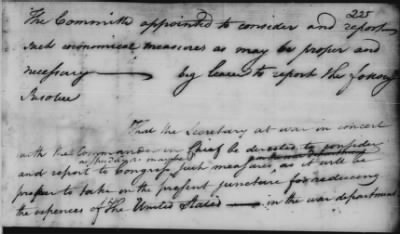 225
The Committee appointed to consider and report
such economical measures as may be proper and
necessary — beg leave to report the following
Resolve
That the Secretary at war in concert
with the Commander in Chief be directed to consider
as speedily as may be
and report to Congress such measures as it will be
proper to take in the present juncture for reducing
the expences of the United States — in the war department